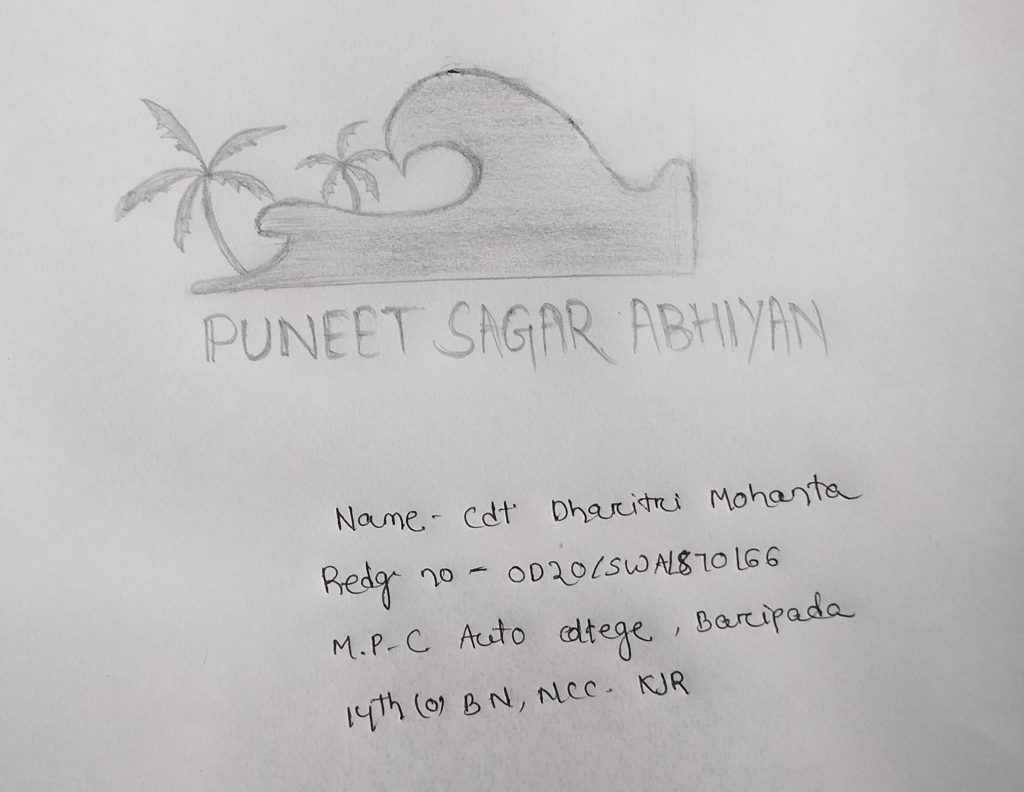 PUNEET SAGAR ABHIYAN
Name - Cdt Dharitri Mohanta
Redg no - OD20/SWA/870166
M.P.C Auto college, Baripada
14th (O) BN, NCC. KJR